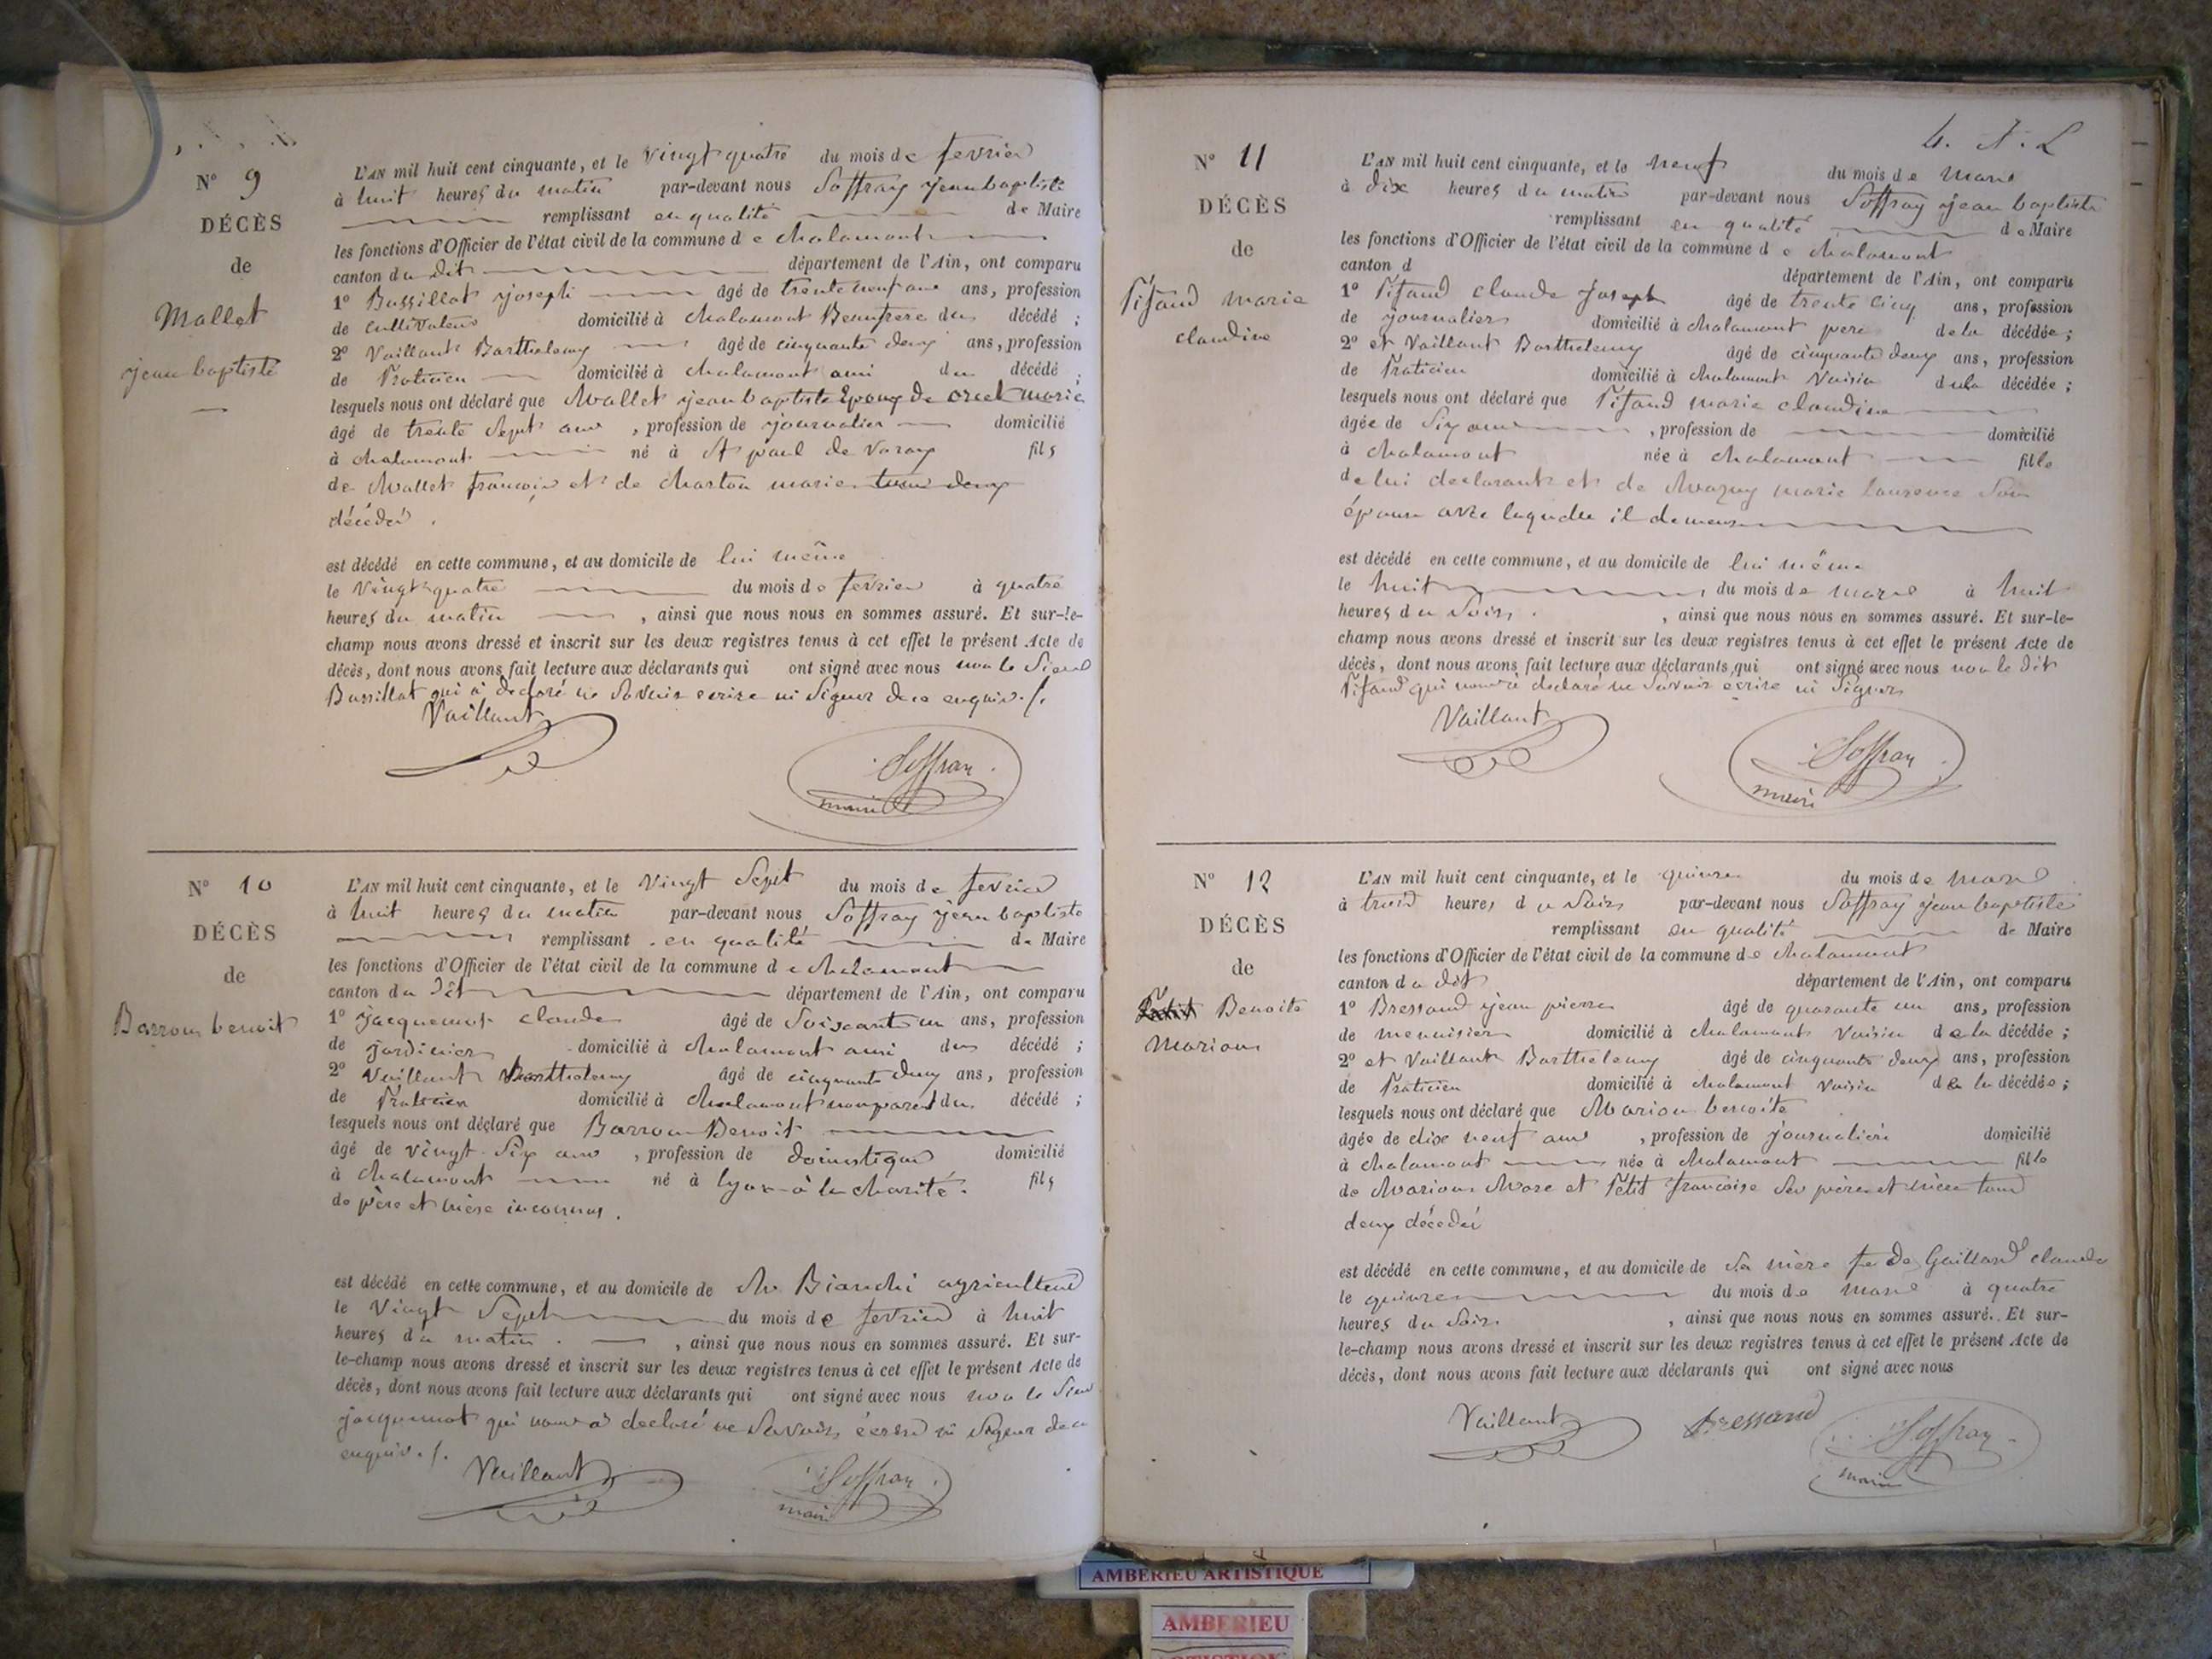 N° 9
DÉCÈS
de
Mallet
jean baptiste
L'AN mil huit cent cinquante, et le vingt quatre du mois de fevrier
à huit heures du matin par-devant nous Soffray jean baptiste
remplissant en qualité de Maire
les fonctions d'Officier de l'état civil de la commune de chalamont
canton du dit département de l'Ain, ont comparu
1° Bussillat joseph âgé de trente neuf ans ans, profession
de cultivateur domicilié à chalamont Beaufrere du décédé ;
2° Vaillant Barthelemy âgé de cinquante deux ans, profession
de Praticien domicilié à chalamont ami du décédé ;
lesquels nous ont déclaré que Mallet jean baptiste Epoux de marie
âgé de trente Sept ans , profession de journalier domicilié
à chalamont né à St paul de Varax fils
de Mallet francois et de Charton marie tous deux
décédés .
est décédé en cette commune, et au domicile de lui même
le vingt quatre du mois de fevrier à quatre
heures du matin , ainsi que nous nous en sommes assuré. Et sur-le-
champ nous avons dressé et inscrit sur les deux registres tenus à cet effet le présent Acte de
décès, dont nous avons fait lecture aux déclarants qui ont signé avec nous non le Sieur
Bussillat qui a declaré ne Savoir ecrire ni Signer de ce enquis ./.
Vaillant
Soffray
maire
N° 10
DÉCÈS
de
Barrou benoit
L'AN mil huit cent cinquante, et le vingt Sept du mois de fevrier
à huit heures du matin par-devant nous Soffray jean baptiste
remplissant en qualité de Maire
les fonctions d'Officier de l'état civil de la commune de chalamont
canton du dit département de l'Ain, ont comparu
1° jacquemot claude âgé de Soixante un ans, profession
de jardinier domicilié à chalamont ami du décédé ;
2° Vaillant Barthelemy âgé de cinquante deux ans, profession
de Praticien domicilié à Chalamont non parent du décédé ;
lesquels nous ont déclaré que Barrou Benoit
âgé de vingt Six ans , profession de domestique domicilié
à chalamont né à lyon à la charité . fils
de père et mère inconnus .
est décédé en cette commune, et au domicile de Mr Bianchi agriculteur
le Vingt Sept du mois de fevrier à huit
heures du matin . , ainsi que nous nous en sommes assuré. Et sur-
le-champ nous avons dressé et inscrit sur les deux registres tenus à cet effet le présent Acte de
décès, dont nous avons fait lecture aux déclarants qui ont signé avec nous non le Sieur
jacquemot qui nous a declaré ne Savoir écrire ni Signer de ce
enquis ./.
Vaillant
Soffray
maire
4. A. L
N° 11
DÉCÈS
de
Pifaud marie
claudine
L'AN mil huit cent cinquante, et le neuf du mois de mars
à dix heures du matin par-devant nous Soffray jean baptiste
remplissant en qualité de Maire
les fonctions d'Officier de l'état civil de la commune de chalamont
canton d département de l'Ain, ont comparu
1° Pifaud claude Joseph âgé de trente cinq ans, profession
de journalier domicilié à chalamont pere de la décédée ;
2° et Vaillant Barthelemy âgé de cinquante deux ans, profession
de Praticien domicilié à chalamont Voisin de la décédée ;
lesquels nous ont déclaré que Pifaud marie claudine
âgée de Six ans , profession de domicilié
à chalamont née à chalamont fille
de lui declarant et de marie laurence Son
épouse avec laquelle il demeure
est décédé en cette commune, et au domicile de lui même
le huit du mois de mars à huit
heures du Soir . , ainsi que nous nous en sommes assuré. Et sur-le-
champ nous avons dressé et inscrit sur les deux registres tenus à cet effet le présent Acte de
décès, dont nous avons fait lecture aux déclarants qui ont signé avec nous non le dit
Pifaud qui nous a declaré ne Savoir écrire ni Signer
Vaillant
Soffray
maire
N° 12
DÉCÈS
de
Benoite
Marion
L'AN mil huit cent cinquante, et le quinze du mois de mars
à trois heures du Soir par-devant nous Soffray jean baptiste
remplissant en qualité de Maire
les fonctions d'Officier de l'état civil de la commune de chalamont
canton du dit département de l'Ain, ont comparu
1° Bressand jean pierre âgé de quarante un ans, profession
de menuisier domicilié à chalamont Voisin de la décédée ;
2° et Vaillant Barthelemy âgé de cinquante deux ans, profession
de Praticien domicilié à chalamont voisin de la décédée ;
lesquels nous ont déclaré que Marion benoite
âgée de dix neuf ans , profession de journalière domicilié
à chalamont née à chalamont fille
de Marion Marc et Petit francoise Ses père et mère tous
deux décédés
est décédé en cette commune, et au domicile de Sa mère fe de Gaillard claude
le quinze du mois de mars à quatre
heures du Soir . , ainsi que nous nous en sommes assuré. Et sur-
le-champ nous avons dressé et inscrit sur les deux registres tenus à cet effet le présent Acte de
décès, dont nous avons fait lecture aux déclarants qui ont signé avec nous
Vaillant Bressand Soffray
maire
AMBERIEU ARTISTIQUE
AMBERIEU